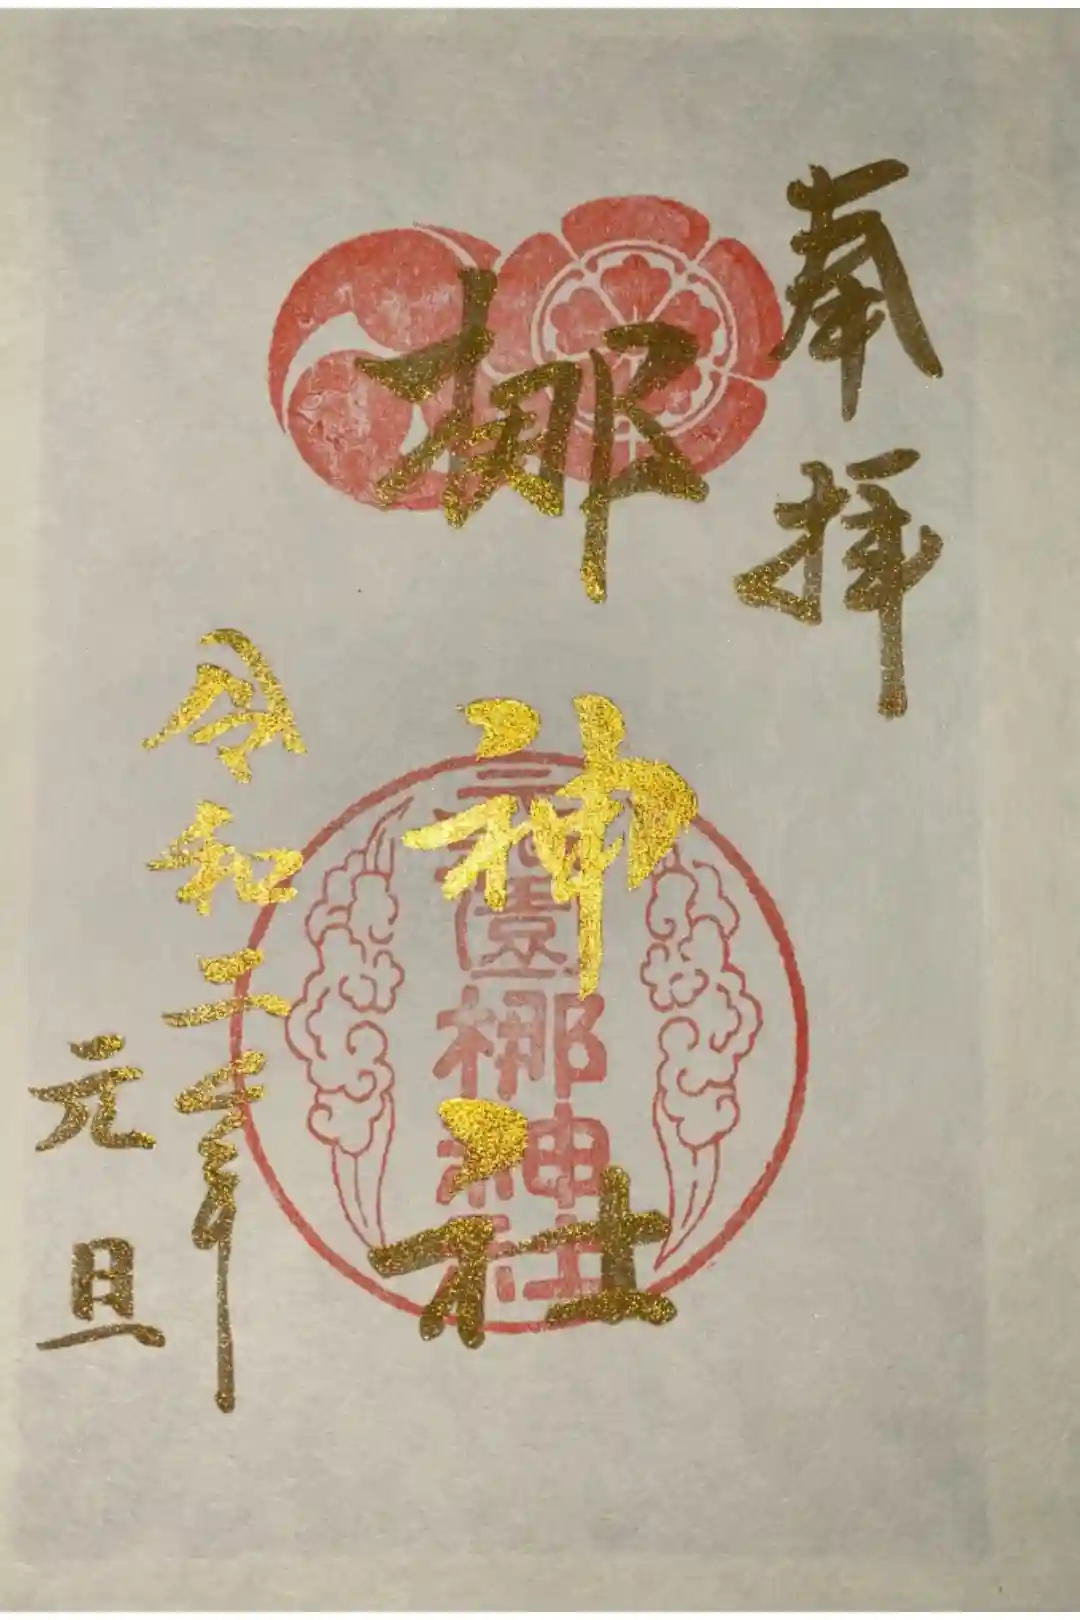 奉拝
梛神社
元祇園梛神社
令和二年
元旦